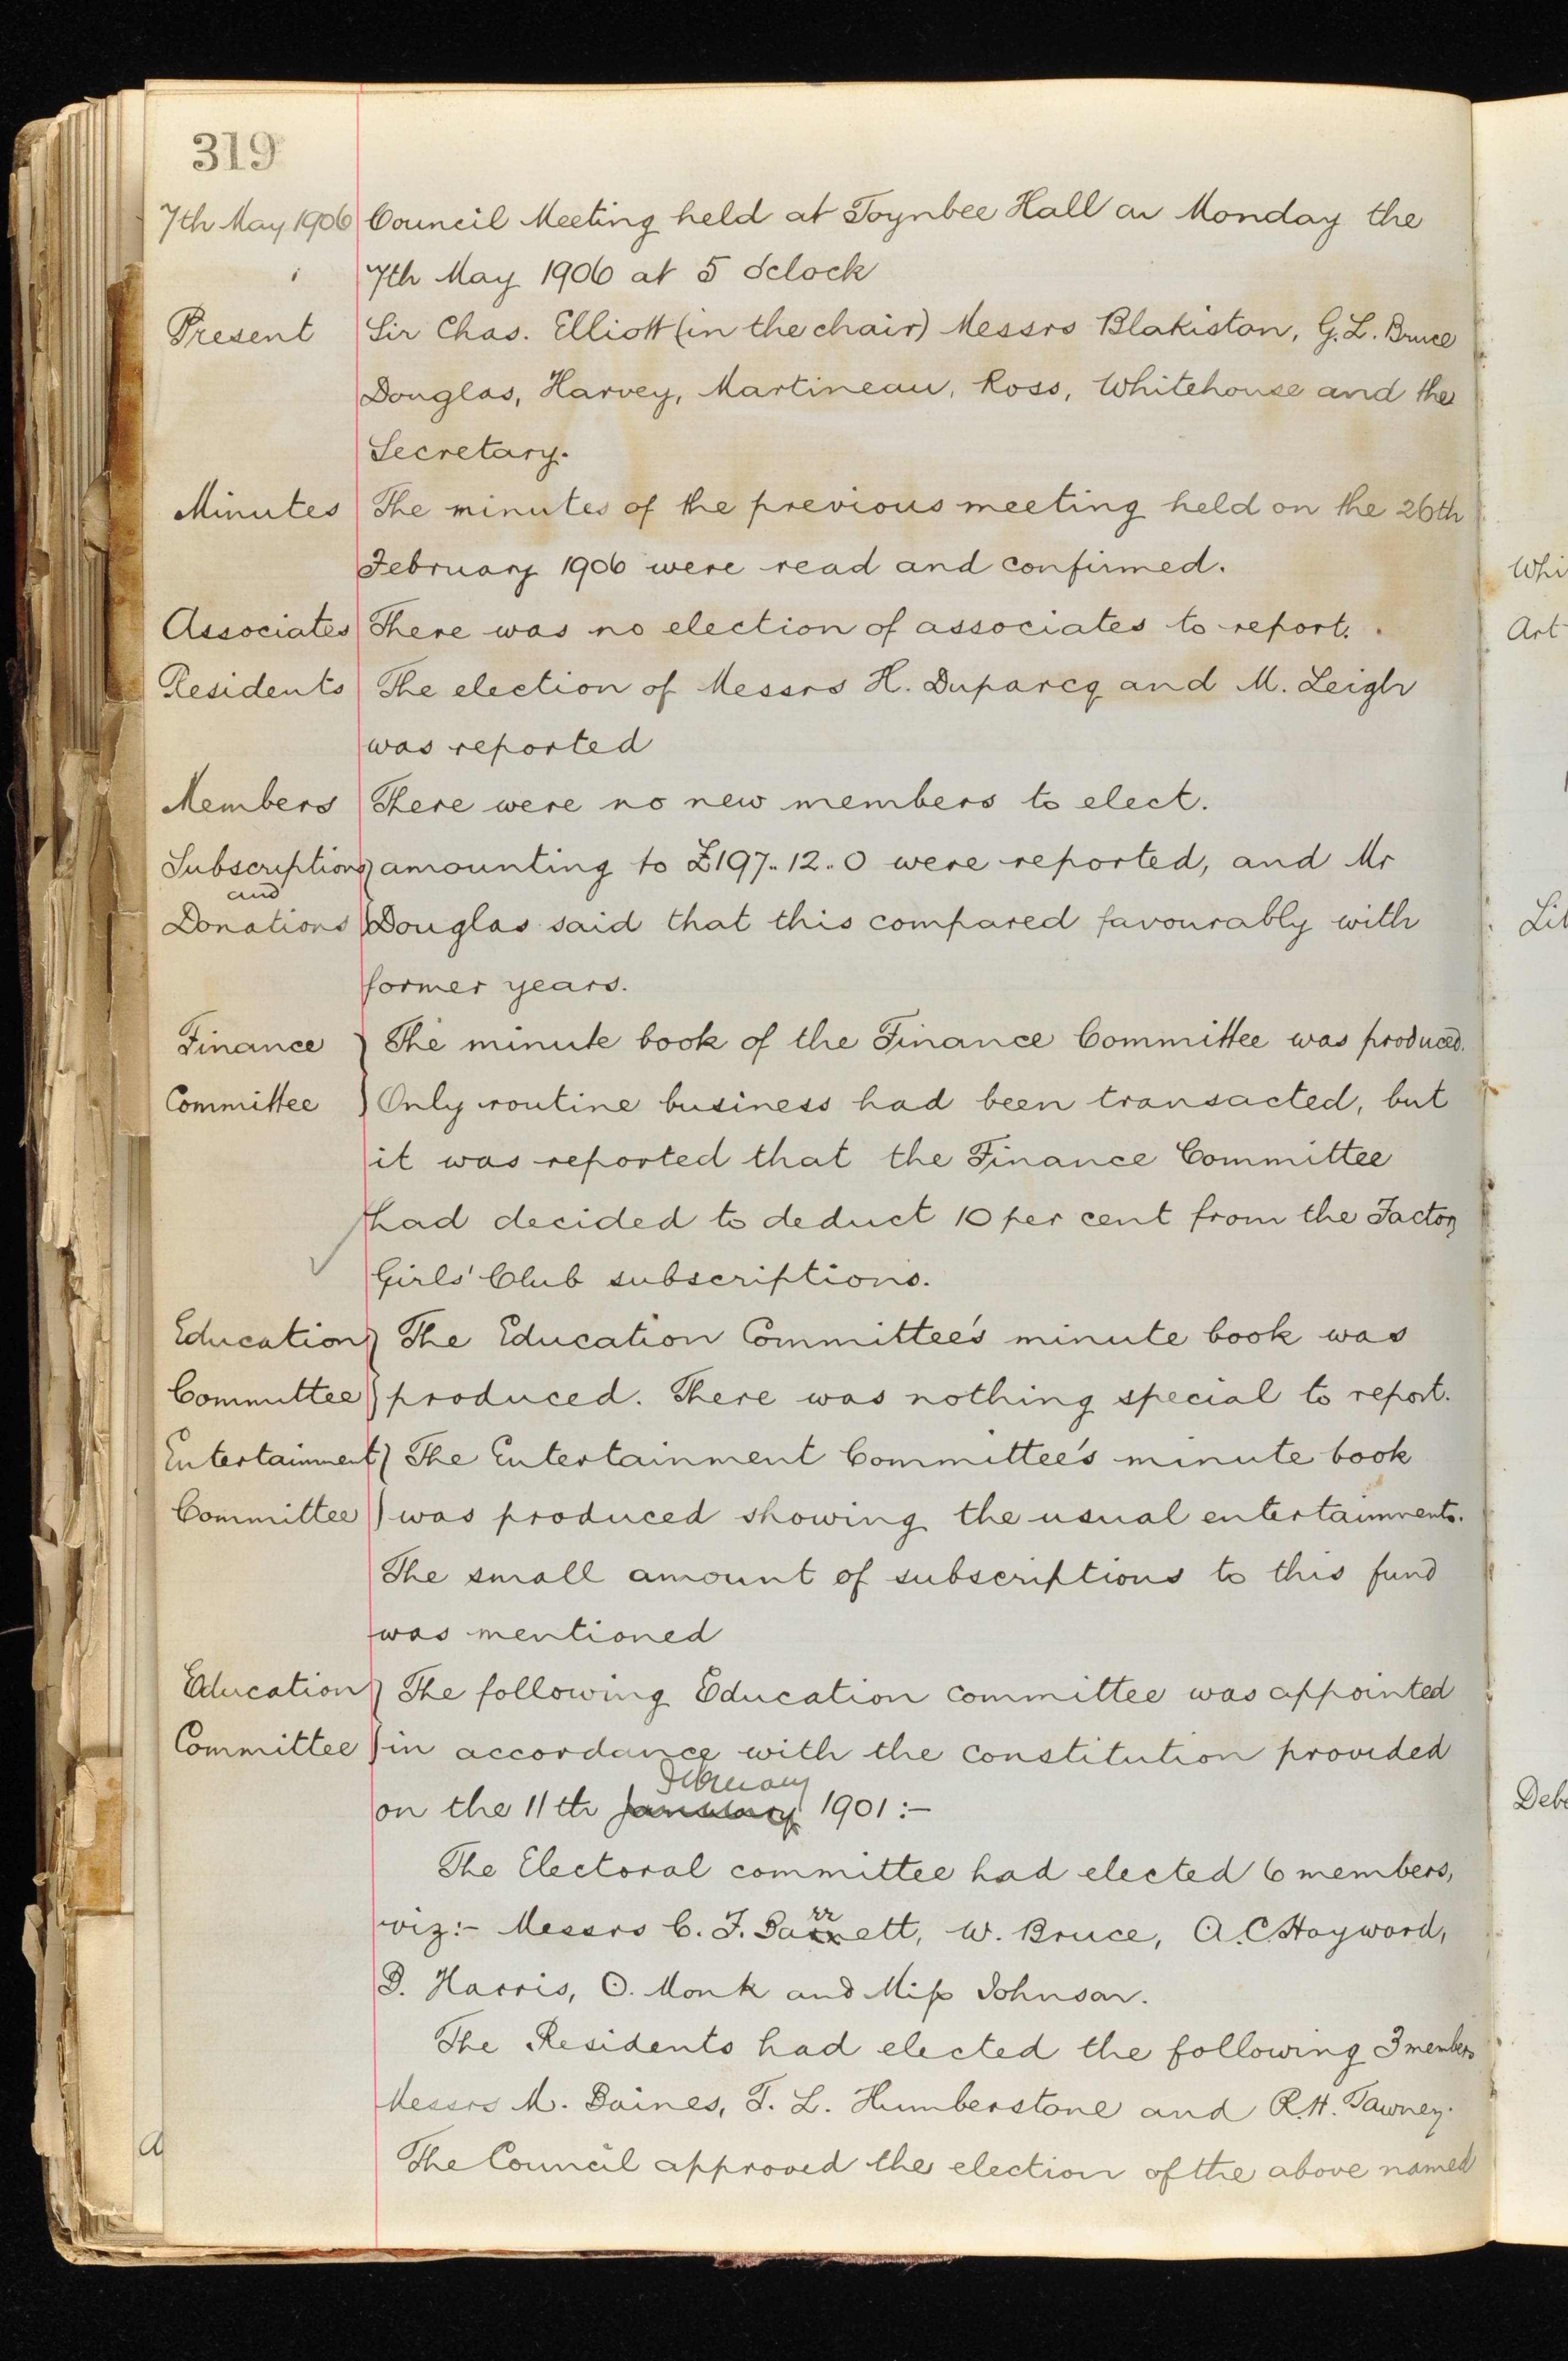 319
7th May 1906 Council Meeting held at Toynbee Hall on Monday the
7th May 1906 at 5 o'clock
Present Sir Chas. Elliott (in the chair) Messrs Blakiston, G. L. Bruce
Douglas, Harvey, Martineau, Ross, Whitehouse and the
Secretary.
Minutes The minutes of the previous meeting held on the 26th
February 1906 were read and confirmed.
Associates There was no election of associates to report.
Residents The election of Messrs H. Duparcq and M. Leigh
was reported
Members There were no new members to elect.
Subscriptions amounting to £197..12..0 were reported, and Mr
and
Donations Douglas said that this compared favourably with
former years.
Finance The minute book of the Finance Committee was produced.
Committee Only routine business had been transacted, but
it was reported that the Finance Committee
had decided to deduct 10 per cent from the Factory
Girls' Club subscriptions.
Education The Education Committee's minute book was
Committee produced. There was nothing special to report.
Entertainment The Entertainment Committee's minute book
Committee was produced showing the usual entertainments.
The small amount of subscriptions to this fund
was mentioned
Education The following Education committee was appointed
Committee in accordance with the constitution provided
February
on the 11th January 1901 :-
The Electoral committee had elected 6 members,
viz:- Messrs C. F. Barrett, W. Bruce, A. C. Hayward,
B. Harris, O. Monk and Miss Johnson.
The Residents had elected the following 3 members
Messrs M. Baines, T. L. Humberstone and R. H. Tawney.
The Council approved the election of the above named
Whi
Art
Lib
Deb
a